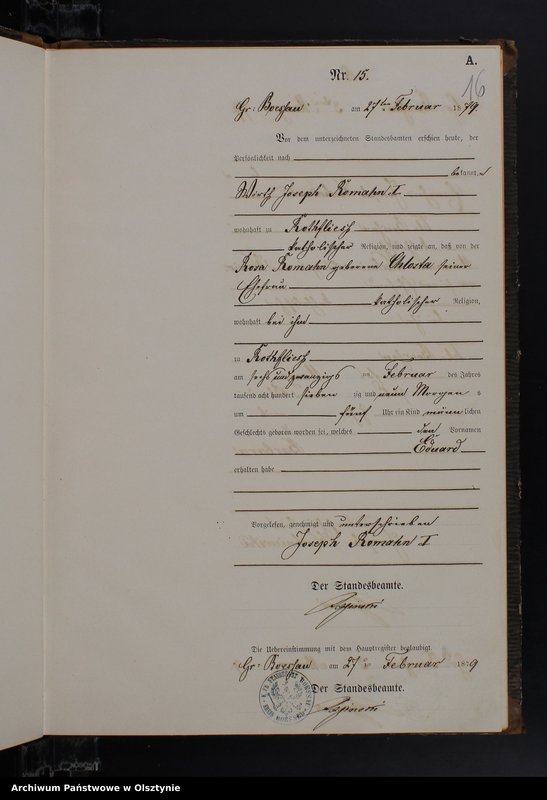 A.
Nr. 15.
16
Gr: Boessau am 27ten Februar 1879.
Vor dem unterzeichneten Standesbeamten erschien heute, der
Persönlichkeit nach
bekannt,
Wirth Joseph Romahn I
wohnhaft zu Rothfliess
katholischer Religion, und zeigte an, daß von der
Rosa Romahn geborene Chlosta seiner
Ehefrau
katholischer Religion,
wohnhaft bei ihm
zu Rothfliess
am sechs und zwanzigs ten Februar des Jahres
tausend acht hundert sieben zig und neun Morgens
um fünf Uhr ein Kind männlichen
Geschlechts geboren worden sei, welches den Vornamen
Eduard
erhalten habe
Vorgelesen, genehmigt und unterschrieben
Joseph Romahn I
Der Standesbeamte.
Die Uebereinstimmung mit dem Hauptregister beglaubigt.
Gr: Boessau am 27 Februar 1879
Der Standesbeamte.
Archiwum Państwowe w Olsztynie